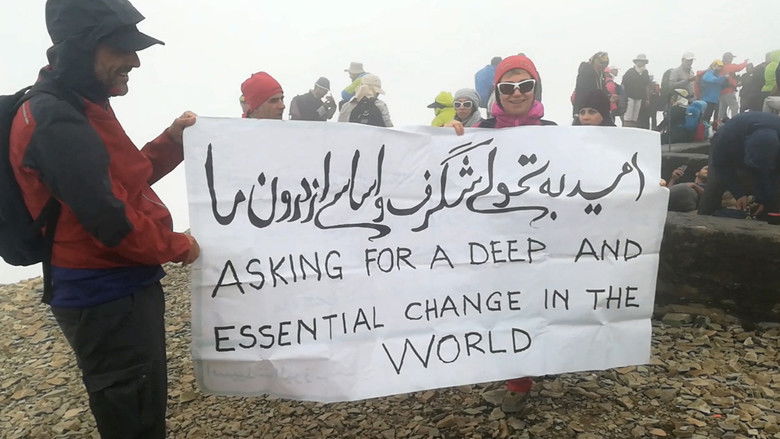 امید به تحولی شگرف و اساسی از درون ما
ASKING FOR A DEEP AND
ESSENTIAL CHANGE IN THE
WORLD